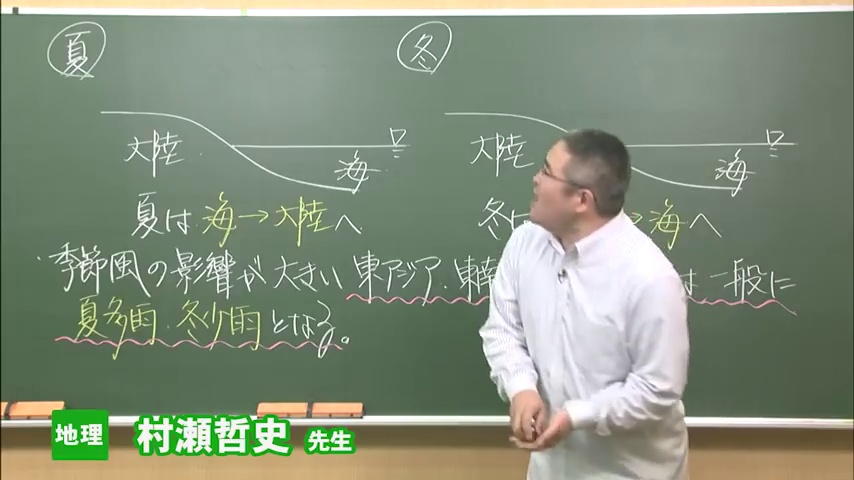 夏
冬
大陸
海
大陸
海
夏は 海→大陸へ
冬は →海へ
・季節風の影響が大きい 東アジア・東南 は一般に
夏多雨・冬少雨となる。
地理 村瀬哲史 先生